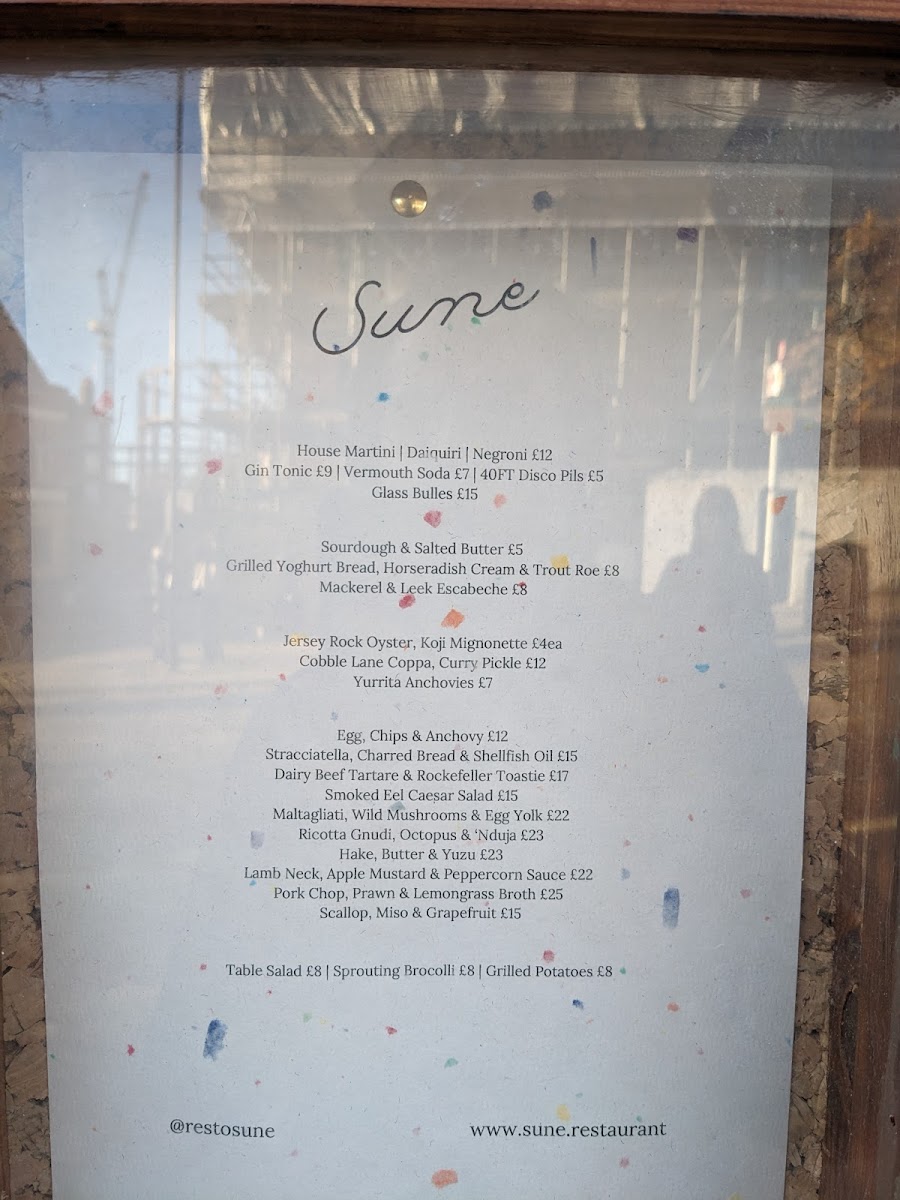 Sune
House Martini | Daiquiri | Negroni £12
Gin Tonic £9 | Vermouth Soda £7 | 40FT Disco Pils £5
Glass Bulles £15
Sourdough & Salted Butter £5
Grilled Yoghurt Bread, Horseradish Cream & Trout Roe £8
Mackerel & Leek Escabeche £8
Jersey Rock Oyster, Koji Mignonette £4ea
Cobble Lane Coppa, Curry Pickle £12
Yurrita Anchovies £7
Egg, Chips & Anchovy £12
Stracciatella, Charred Bread & Shellfish Oil £15
Dairy Beef Tartare & Rockefeller Toastie £17
Smoked Eel Caesar Salad £15
Maltagliati, Wild Mushrooms & Egg Yolk £22
Ricotta Gnudi, Octopus & ‘Nduja £23
Hake, Butter & Yuzu £23
Lamb Neck, Apple Mustard & Peppercorn Sauce £22
Pork Chop, Prawn & Lemongrass Broth £25
Scallop, Miso & Grapefruit £15
Table Salad £8 | Sprouting Brocolli £8 | Grilled Potatoes £8
@restosune
www.sune.restaurant